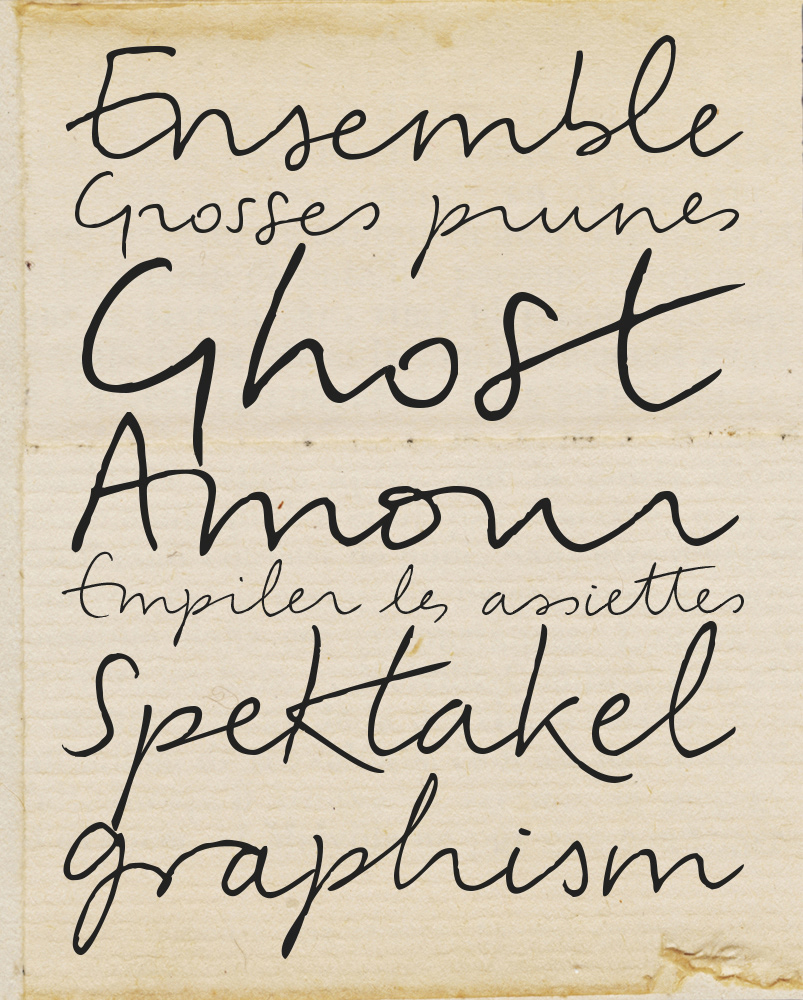 Ensemble
Grosses prunes
Ghost
Amour
Empiler les assiettes
Spektakel
graphism